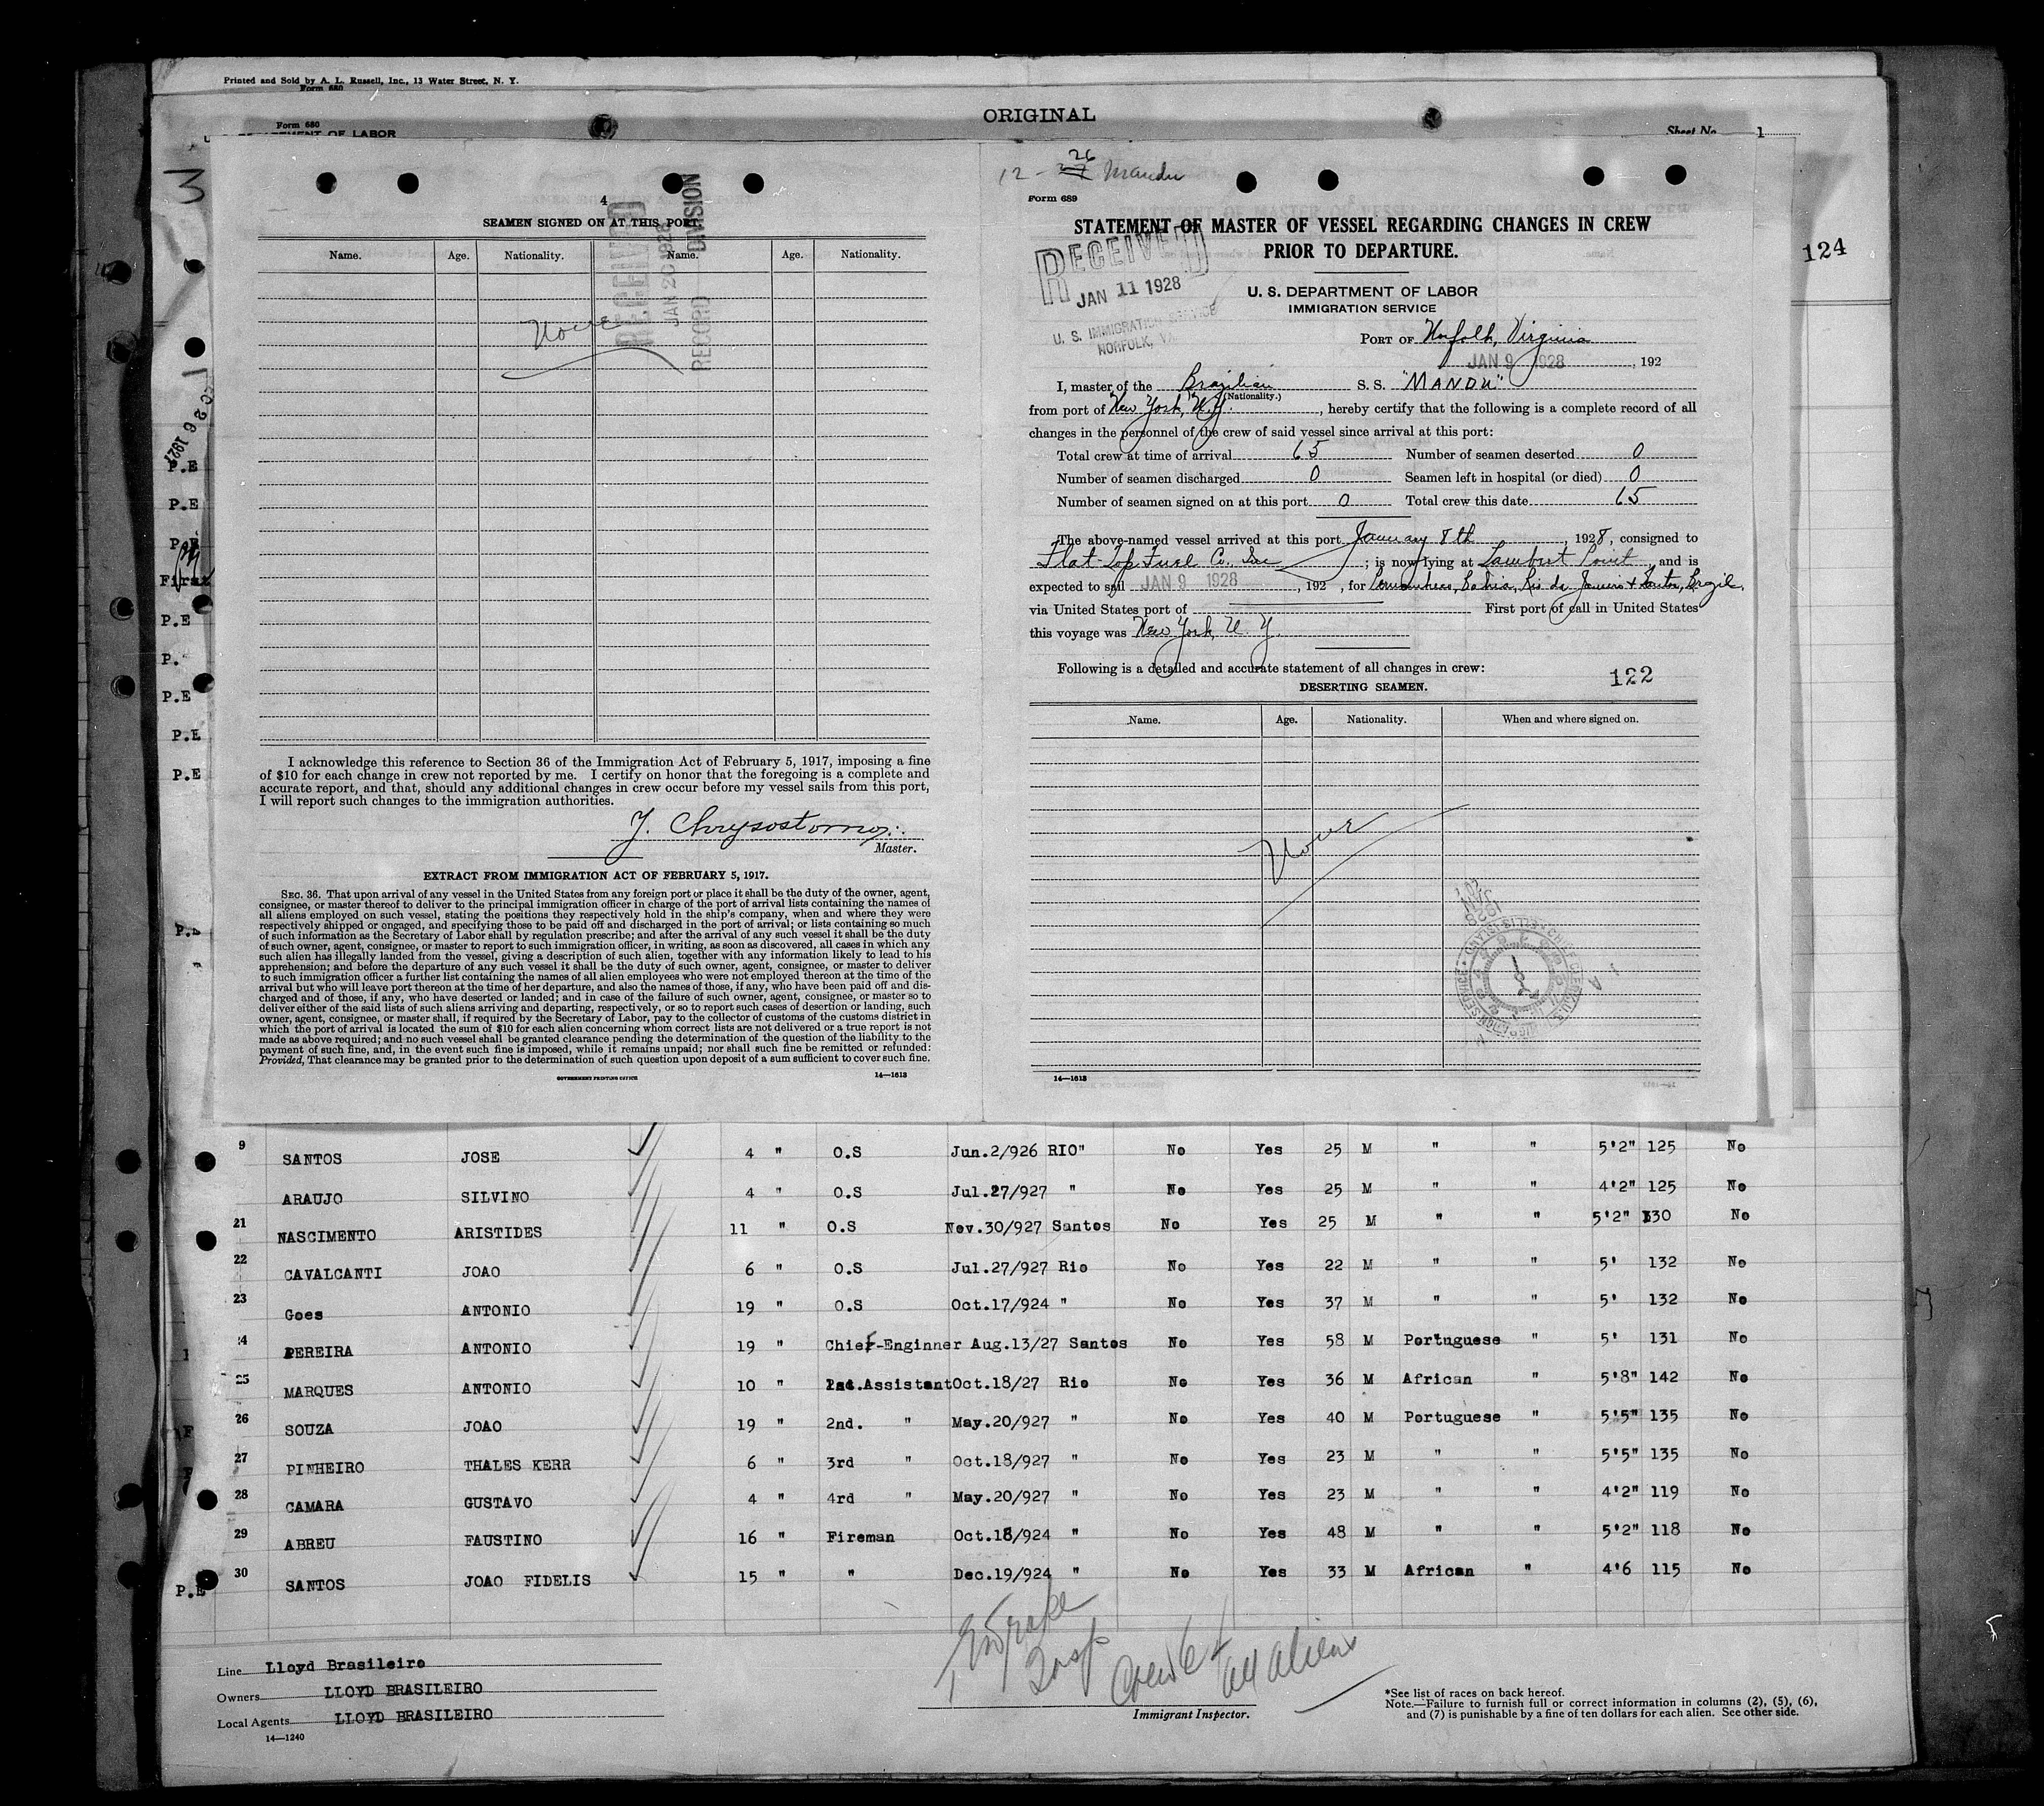 Printed and Sold by A. L. Russell, Inc., 13 Water Street, N. Y.
Form 680
ORIGINAL
Form 680
DEPARTMENT OF LABOR
Sheet No. 1
3
4
SEAMEN SIGNED ON AT THIS PORT.
Name. Age. Nationality. Name. Age. Nationality.
RECEIVED
JAN 20 1928
RECORD DIVISION
None
I acknowledge this reference to Section 36 of the Immigration Act of February 5, 1917, imposing a fine
of $10 for each change in crew not reported by me. I certify on honor that the foregoing is a complete and
accurate report, and that, should any additional changes in crew occur before my vessel sails from this port,
I will report such changes to the immigration authorities.
J. Chrysostomo
Master.
EXTRACT FROM IMMIGRATION ACT OF FEBRUARY 5, 1917.
SEC. 36. That upon arrival of any vessel in the United States from any foreign port or place it shall be the duty of the owner, agent,
consignee, or master thereof to deliver to the principal immigration officer in charge of the port of arrival lists containing the names of
all aliens employed on such vessel, stating the positions they respectively hold in the ship's company, when and where they were
respectively shipped or engaged, and specifying those to be paid off and discharged in the port of arrival; or lists containing so much
of such information as the Secretary of Labor shall by regulation prescribe; and after the arrival of any such vessel it shall be the duty
of such owner, agent, consignee, or master to report to such immigration officer, in writing, as soon as discovered, all cases in which any
such alien has illegally landed from the vessel, giving a description of such alien, together with any information likely to lead to his
apprehension; and before the departure of any such vessel it shall be the duty of such owner, agent, consignee, or master to deliver
to such immigration officer a further list containing the names of all alien employees who were not employed thereon at the time of the
arrival but who will leave port thereon at the time of her departure, and also the names of those, if any, who have been paid off and dis-
charged and of those, if any, who have deserted or landed; and in case of the failure of such owner, agent, consignee, or master so to
deliver either of the said lists of such aliens arriving and departing, respectively, or so to report such cases of desertion or landing, such
owner, agent, consignee, or master shall, if required by the Secretary of Labor, pay to the collector of customs of the customs district in
which the port of arrival is located the sum of $10 for each alien concerning whom correct lists are not delivered or a true report is not
made as above required; and no such vessel shall be granted clearance pending the determination of the question of the liability to the
payment of such fine, and, in the event such fine is imposed, while it remains unpaid; nor shall such fine be remitted or refunded:
Provided, That clearance may be granted prior to the determination of such question upon deposit of a sum sufficient to cover such fine.
GOVERNMENT PRINTING OFFICE 14—1613
12 - 26 Mandu
Form 689
STATEMENT OF MASTER OF VESSEL REGARDING CHANGES IN CREW
PRIOR TO DEPARTURE.
RECEIVED
JAN 11 1928
U. S. IMMIGRATION SERVICE
NORFOLK, VA.
U. S. DEPARTMENT OF LABOR
IMMIGRATION SERVICE
PORT OF Norfolk, Virginia
JAN 9 1928, 192
I, master of the Brazilian S. S. "MANDU"
(Nationality.)
from port of New York, N.Y., hereby certify that the following is a complete record of all
changes in the personnel of the crew of said vessel since arrival at this port:
Total crew at time of arrival 65 Number of seamen deserted 0
Number of seamen discharged 0 Seamen left in hospital (or died) 0
Number of seamen signed on at this port 0 Total crew this date 65
The above-named vessel arrived at this port January 8th, 1928, consigned to
Flat-Top Fuel Co. Inc; is now lying at Lambert Point, and is
expected to sail JAN 9 1928, 192 , for Pernambuco, Bahia, Rio de Janeiro & Santos, Brazil,
via United States port of First port of call in United States
this voyage was New York, N. Y.
Following is a detailed and accurate statement of all changes in crew:
122
DESERTING SEAMEN.
Name. Age. Nationality. When and where signed on.
None
14—1613
124
P.E
P.E
P.E
First
P.E
P.
P.E
P.E
P.E
9 SANTOS JOSE 4 " O.S Jun.2/926 RIO" No Yes 25 M " " 5'2" 125 No
ARAUJO SILVINO 4 " O.S Jul.27/927 " No Yes 25 M " " 4'2" 125 No
21 NASCIMENTO ARISTIDES 11 " O.S Nov.30/927 Santos No Yes 25 M " " 5'2" 130 No
22 CAVALCANTI JOAO 6 " O.S Jul.27/927 Rio No Yes 22 M " " 5' 132 No
23 Goes ANTONIO 19 " O.S Oct.17/924 " No Yes 37 M " " 5' 132 No
24 PEREIRA ANTONIO 19 " Chief-Enginner Aug.13/27 Santos No Yes 58 M Portuguese " 5' 131 No
25 MARQUES ANTONIO 10 " 1st.Assistant Oct.18/27 Rio No Yes 36 M African " 5'8" 142 No
26 SOUZA JOAO 19 " 2nd. " May.20/927 " No Yes 40 M Portuguese " 5'5" 135 No
27 PINHEIRO THALES KERR 6 " 3rd " Oct.18/927 " No Yes 23 M " " 5'5" 135 No
28 CAMARA GUSTAVO 4 " 4rd " May.20/927 " No Yes 23 M " " 4'2" 119 No
29 ABREU FAUSTINO 16 " Fireman Oct.18/924 " No Yes 48 M " " 5'2" 118 No
30 SANTOS JOAO FIDELIS 15 " " Dec.19/924 " No Yes 33 M African " 4'6 115 No
P.E
Line Lloyd Brasileiro
Owners LLOYD BRASILEIRO
Local Agents LLOYD BRASILEIRO
14—1240
Insp
all aliens
Immigrant Inspector.
*See list of races on back hereof.
Note.—Failure to furnish full or correct information in columns (2), (5), (6),
and (7) is punishable by a fine of ten dollars for each alien. See other side.